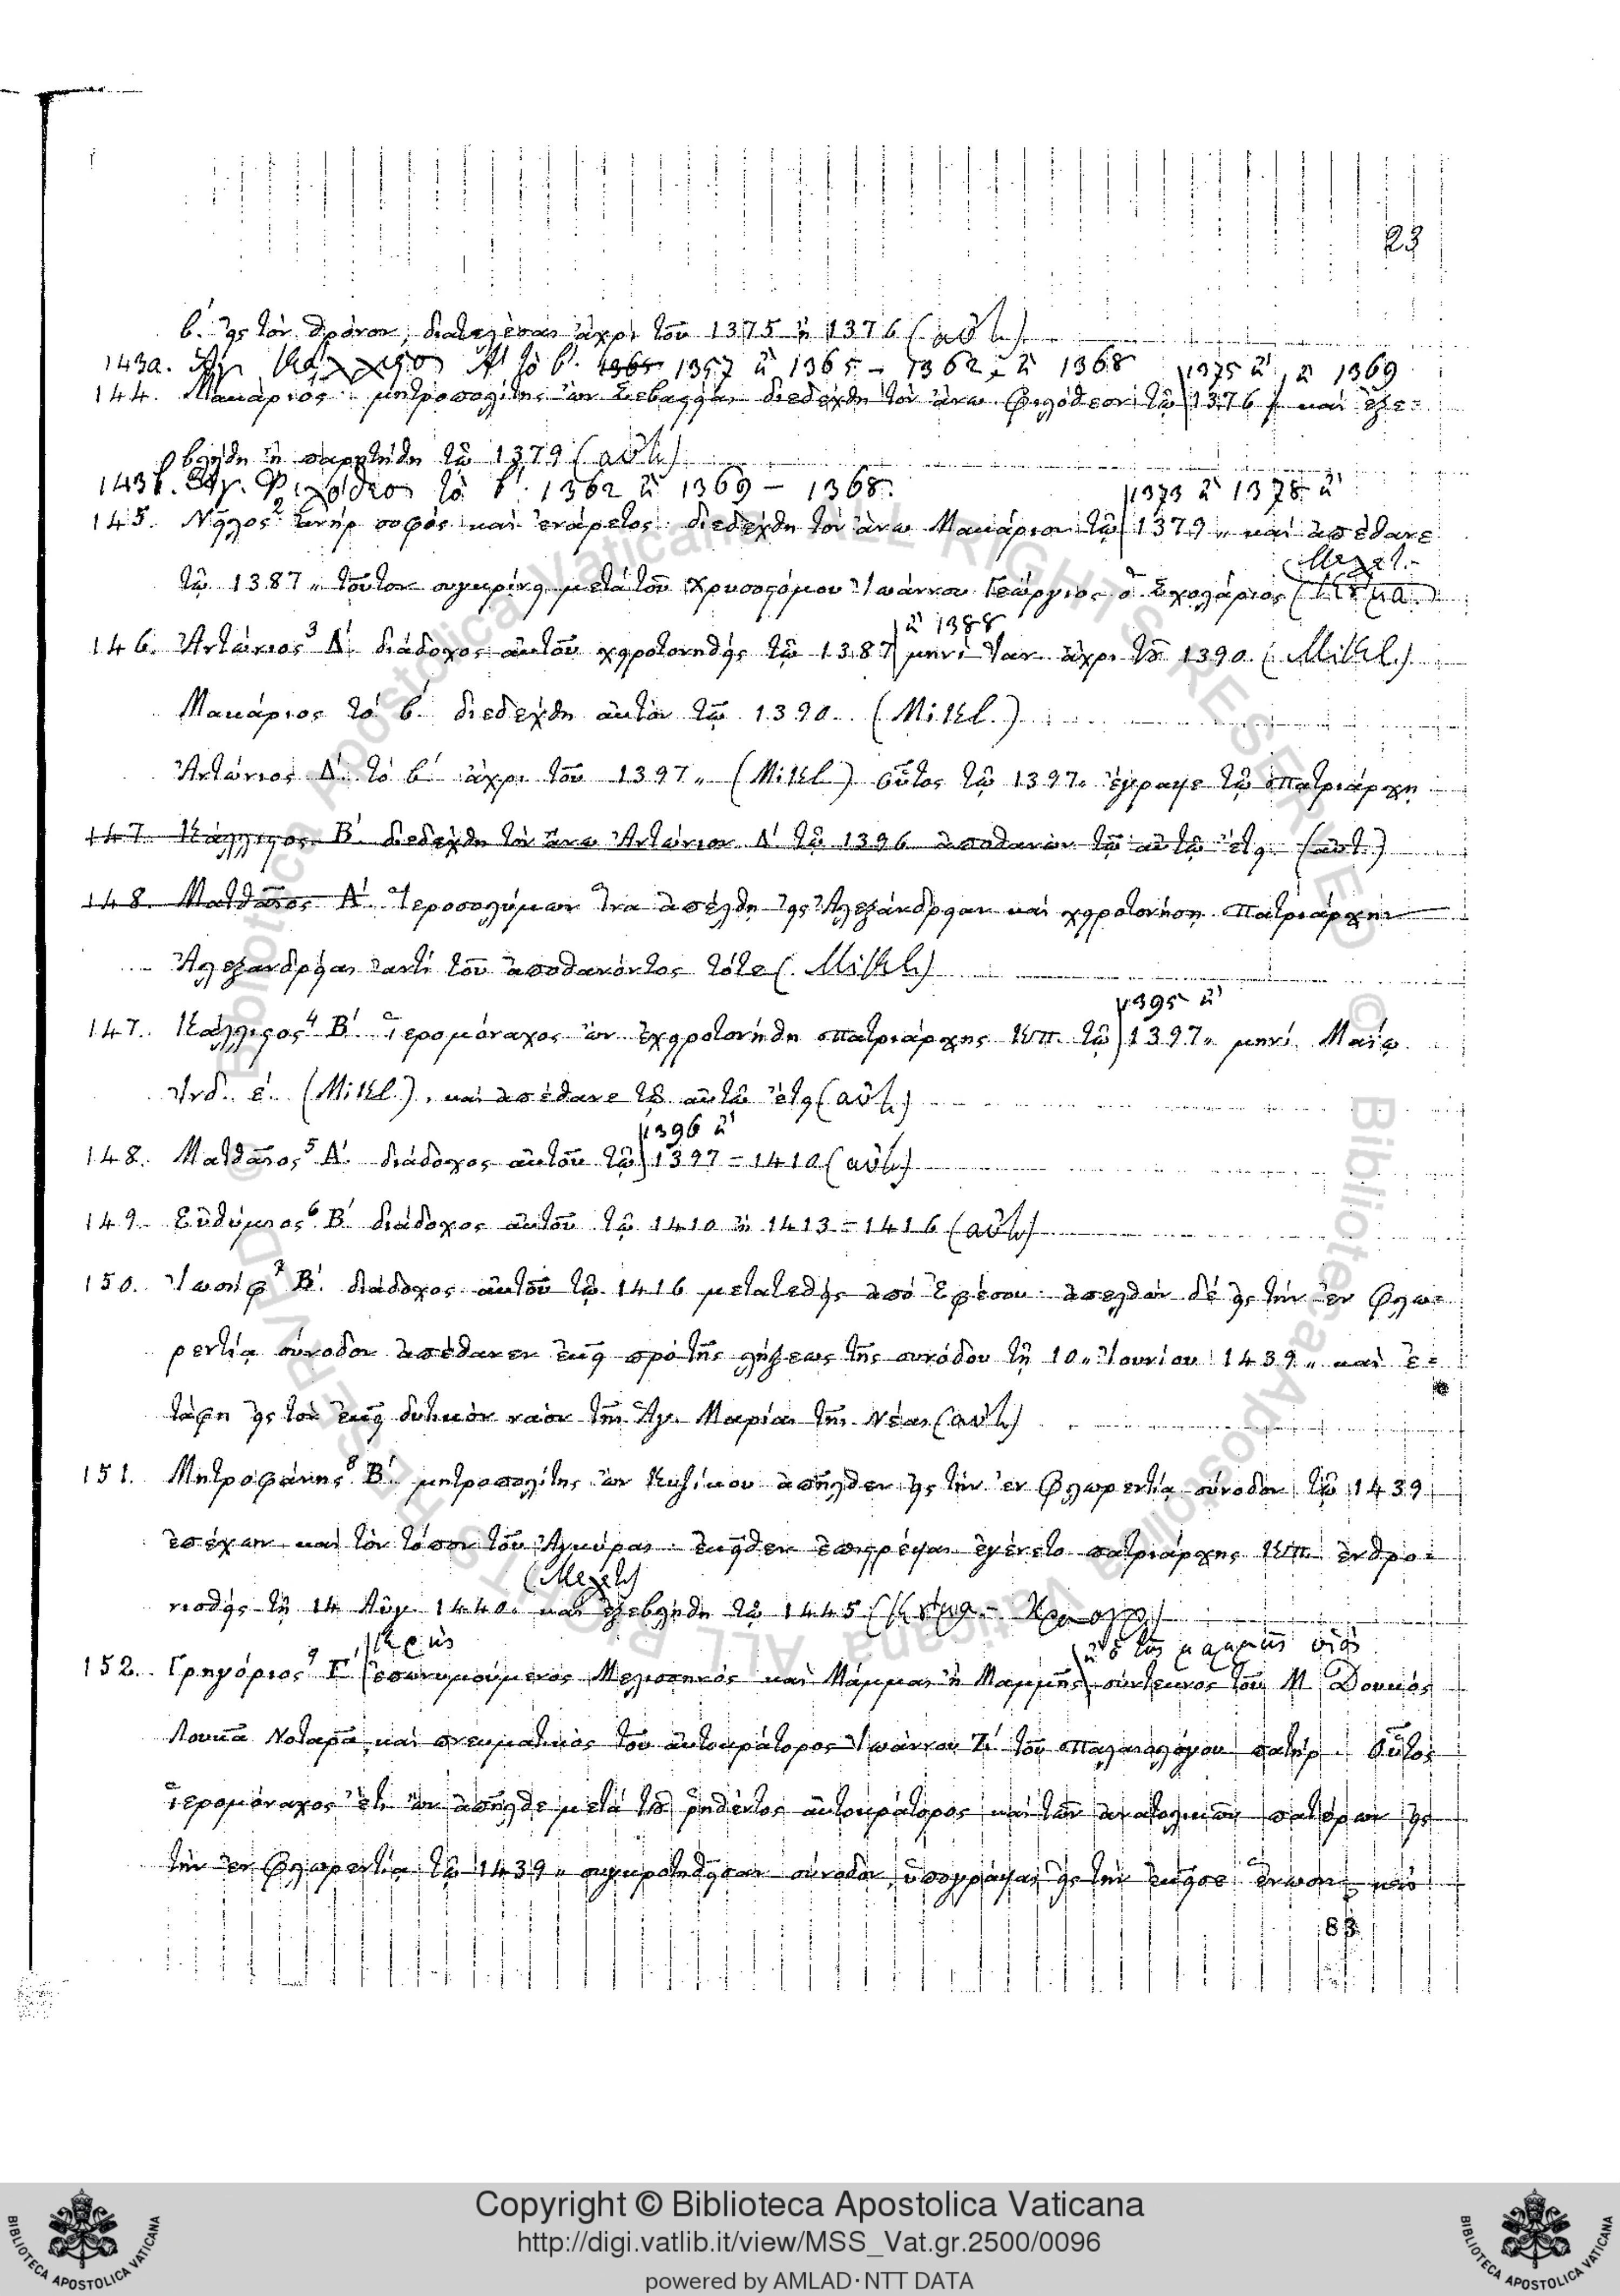 23
β΄. εἰς τὸν θρόνον, διατελέσας ἄχρι τοῦ 1375 ἢ 1376 (αὐτ.)
143a. Ἁγ. Κάλλιστος Α΄ τὸ β΄. 1365 1357 ἢ 1365 - 1362, ἢ 1368
1375 ἢ, ἢ 1369
144. Μακάριος μητροπολίτης ὢν Σεβαστείας διεδέχθη τὸν ἄνω Φιλόθεον τῷ 1376 καὶ ἐξε=
βλήθη ἢ παρῃτήθη τῷ 1379 (αὐτ.)
143b. Ἁγ. Φιλόθεος τὸ β΄. 1362 ἢ 1369 - 1368.
1373 ἢ 1378 ἢ
145. Νεῖλος² ἀνὴρ σοφὸς καὶ ἐνάρετος διεδέχθη τὸν ἄνω Μακάριον τῷ 1379 καὶ ἀπέθανε
(Μελετ.
τῷ 1387 τοῦτον συγκρίνει μετὰ τοῦ Χρυσοστόμου Ἰωάννου Γεώργιος ὁ Σχολάριος
ἢ 1388
146. Ἀντώνιος³ Δ΄. διάδοχος αὐτοῦ χειροτονηθεὶς τῷ 1387 μηνὶ Ἰαν. ἄχρι τοῦ 1390. (Mikl.)
Μακάριος τὸ β΄ διεδέχθη αὐτὸν τῷ 1390. (Mikl.)
Ἀντώνιος Δ΄. τὸ β΄ ἄχρι τοῦ 1397 (Mikl.) οὗτος τῷ 1397 ἔγραψε τῷ πατριάρχῃ
147. Κάλλιστος Β΄. διεδέχθη τὸν ἄνω Ἀντώνιον Δ΄ τῷ 1396 ἀποθανὼν τῷ αὐτῷ ἔτει (αὐτ.)
148. Ματθαῖος Α΄. Ἱεροσολύμων ἵνα ἀπέλθῃ εἰς Ἀλεξάνδρειαν καὶ χειροτονήσῃ πατριάρχην
Ἀλεξανδρείας ἀντὶ τοῦ ἀποθανόντος τότε (Mikl.)
1395 ἢ
147. Κάλλιστος⁴ Β΄ ἱερομόναχος ὢν ἐχειροτονήθη πατριάρχης Κπ. τῷ 1397 μηνὶ Μαίῳ
Ἰνδ. ε΄. (Mikl.), καὶ ἀπέθανε τῷ αὐτῷ ἔτει (αὐτ.)
1396 ἢ
148. Ματθαῖος⁵ Α΄. διάδοχος αὐτοῦ τῷ 1397 - 1410 (αὐτ.)
149. Εὐθύμιος⁶ Β΄ διάδοχος αὐτοῦ τῷ 1410 ἢ 1413 - 1416 (αὐτ.)
150. Ἰωσὴφ⁷ Β΄. διάδοχος αὐτοῦ τῷ 1416 μετατεθεὶς ἀπὸ Ἐφέσου ἀπελθὼν δὲ εἰς τὴν ἐν Φλω=
ρεντίᾳ σύνοδον ἀπέθανεν ἐκεῖ πρὸ τῆς λήξεως τῆς συνόδου τῇ 10 Ἰουνίου 1439 καὶ ἐ=
τάφη εἰς τὸν ἐκεῖ δυτικὸν ναὸν τῆς Ἁγ. Μαρίας τῆς Νέας (αὐτ.)
151. Μητροφάνης⁸ Β΄. μητροπολίτης ὢν Κυζίκου ἀπῆλθεν εἰς τὴν ἐν Φλωρεντίᾳ σύνοδον τῷ 1439
ἐπέχων καὶ τὸν τόπον τοῦ Ἀγκύρας ἐκεῖθεν ἐπιστρέψας ἐγένετο πατριάρχης Κπ. ἐνθρο=
(Μελετ.)
νισθεὶς τῇ 14 Αὐγ. 1440. καὶ ἐξεβλήθη τῷ 1445
152. Γρηγόριος⁹ Γ΄ ἐπονομούμενος Μελισηνὸς καὶ Μάμμας ἢ Μαμμῆς σύντεκνος τοῦ Μ. Δουκὸς
Λουκᾶ Νοταρᾶ, καὶ πνευματικὸς τοῦ αὐτοκράτορος Ἰωάννου Ζ΄ τοῦ Παλαιολόγου πατήρ. Οὗτος
ἱερομόναχος ἔτι ὢν ἀπῆλθε μετὰ τοῦ ῥηθέντος αὐτοκράτορος καὶ τῶν ἀνατολικῶν πατέρων εἰς
τὴν ἐν Φλωρεντίᾳ τῷ 1439 συγκροτηθεῖσαν σύνοδον, ὑπογράψας εἰς τὴν ἐκεῖσε ἕνωσιν
83
Copyright © Biblioteca Apostolica Vaticana
http://digi.vatlib.it/view/MSS_Vat.gr.2500/0096
powered by AMLAD·NTT DATA
BIBLIOTECA APOSTOLICA VATICANA
BIBLIOTECA APOSTOLICA VATICANA